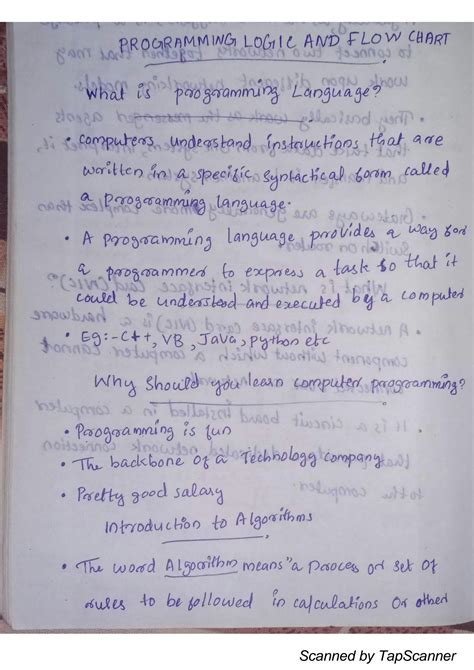 PROGRAMMING LOGIC AND FLOW CHART
What is programming Language?
• Computers understand instructions that are
written in a specific syntactical form called
a programming language.
• A programming language provides a way for
a programmer to express a task so that it
could be understood and executed by a computer
• Eg:- C++, VB, Java, Python etc
Why should you learn computer programming?
• Programming is fun
• The backbone of a Technology company
• Pretty good salary
Introduction to Algorithms
• The word Algorithm means "a process or set of
rules to be followed in calculations or other
Scanned by TapScanner